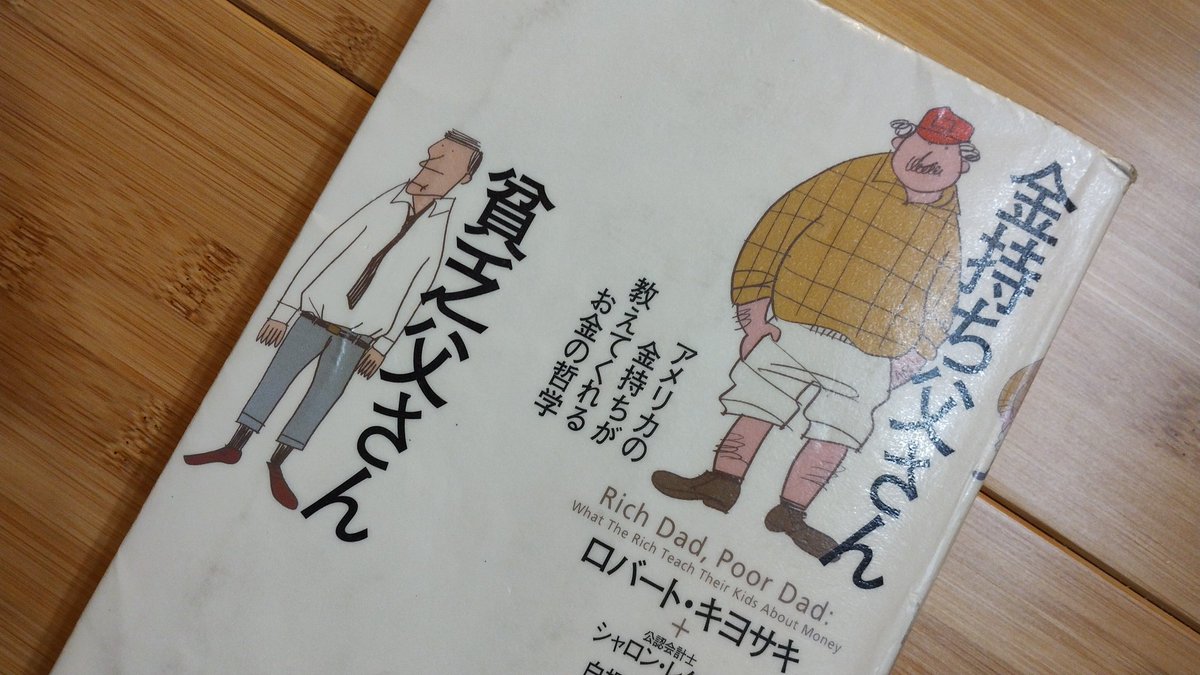 金持ち父さん
貧乏父さん
アメリカの
金持ちが
教えてくれる
お金の哲学
Rich Dad, Poor Dad:
What The Rich Teach Their Kids About Money
ロバート・キヨサキ
+
公認会計士
シャロン・レ
白根